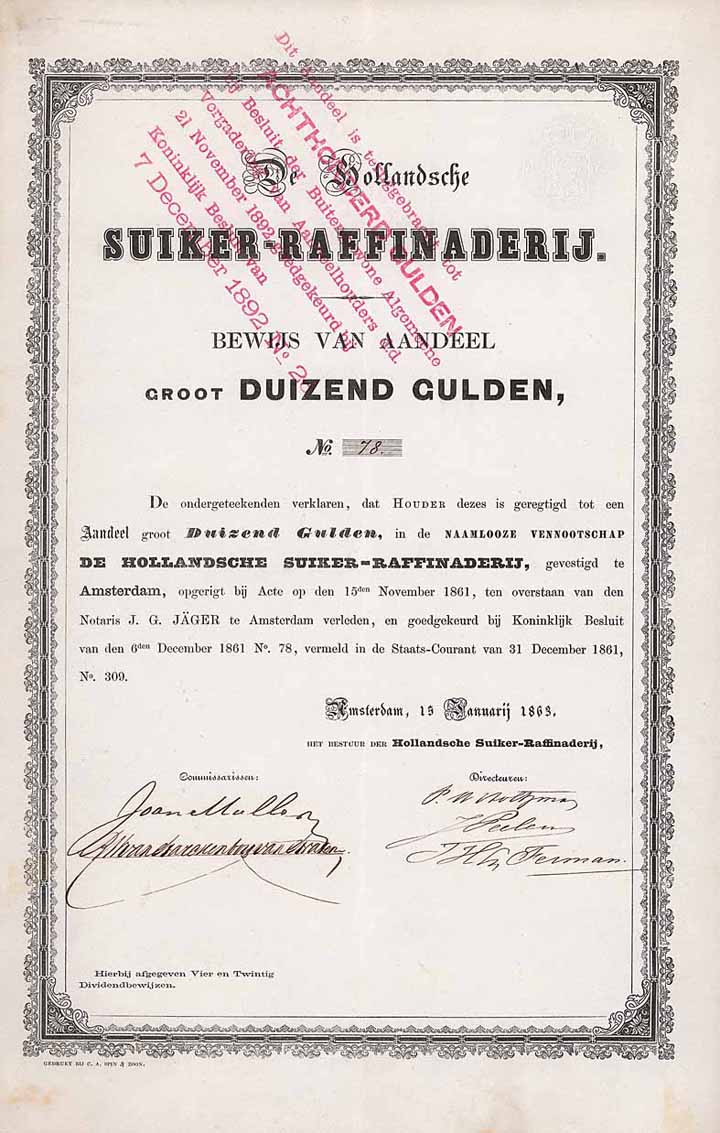 Dit Aandeel is teruggebracht tot
ACHTHONDERD GULDEN
bij Besluit der Buitengewone Algemeene
Vergadering van Aandeelhouders d.d.
21 November 1892, goedgekeurd bij
Koninklijk Besluit van
7 December 1892 No. 26
De Hollandsche
SUIKER-RAFFINADERIJ.
BEWIJS VAN AANDEEL
GROOT DUIZEND GULDEN,
No. 78.
De ondergeteekenden verklaren, dat HOUDER dezes is geregtigd tot een
Aandeel groot Duizend Gulden, in de NAAMLOOZE VENNOOTSCHAP
DE HOLLANDSCHE SUIKER-RAFFINADERIJ, gevestigd te
Amsterdam, opgerigt bij Acte op den 15den November 1861, ten overstaan van den
Notaris J. G. JÄGER te Amsterdam verleden, en goedgekeurd bij Koninklijk Besluit
van den 6den December 1861 No. 78, vermeld in de Staats-Courant van 31 December 1861,
No. 309.
Amsterdam, 15 Januarij 1863.
HET BESTUUR DER Hollandsche Suiker-Raffinaderij,
Commissarissen:
Directeuren:
Joan Muller
J Peelen
Ferman.
Hierbij afgegeven Vier en Twintig
Dividendbewijzen.
GEDRUKT BIJ C. A. SPIN & ZOON.